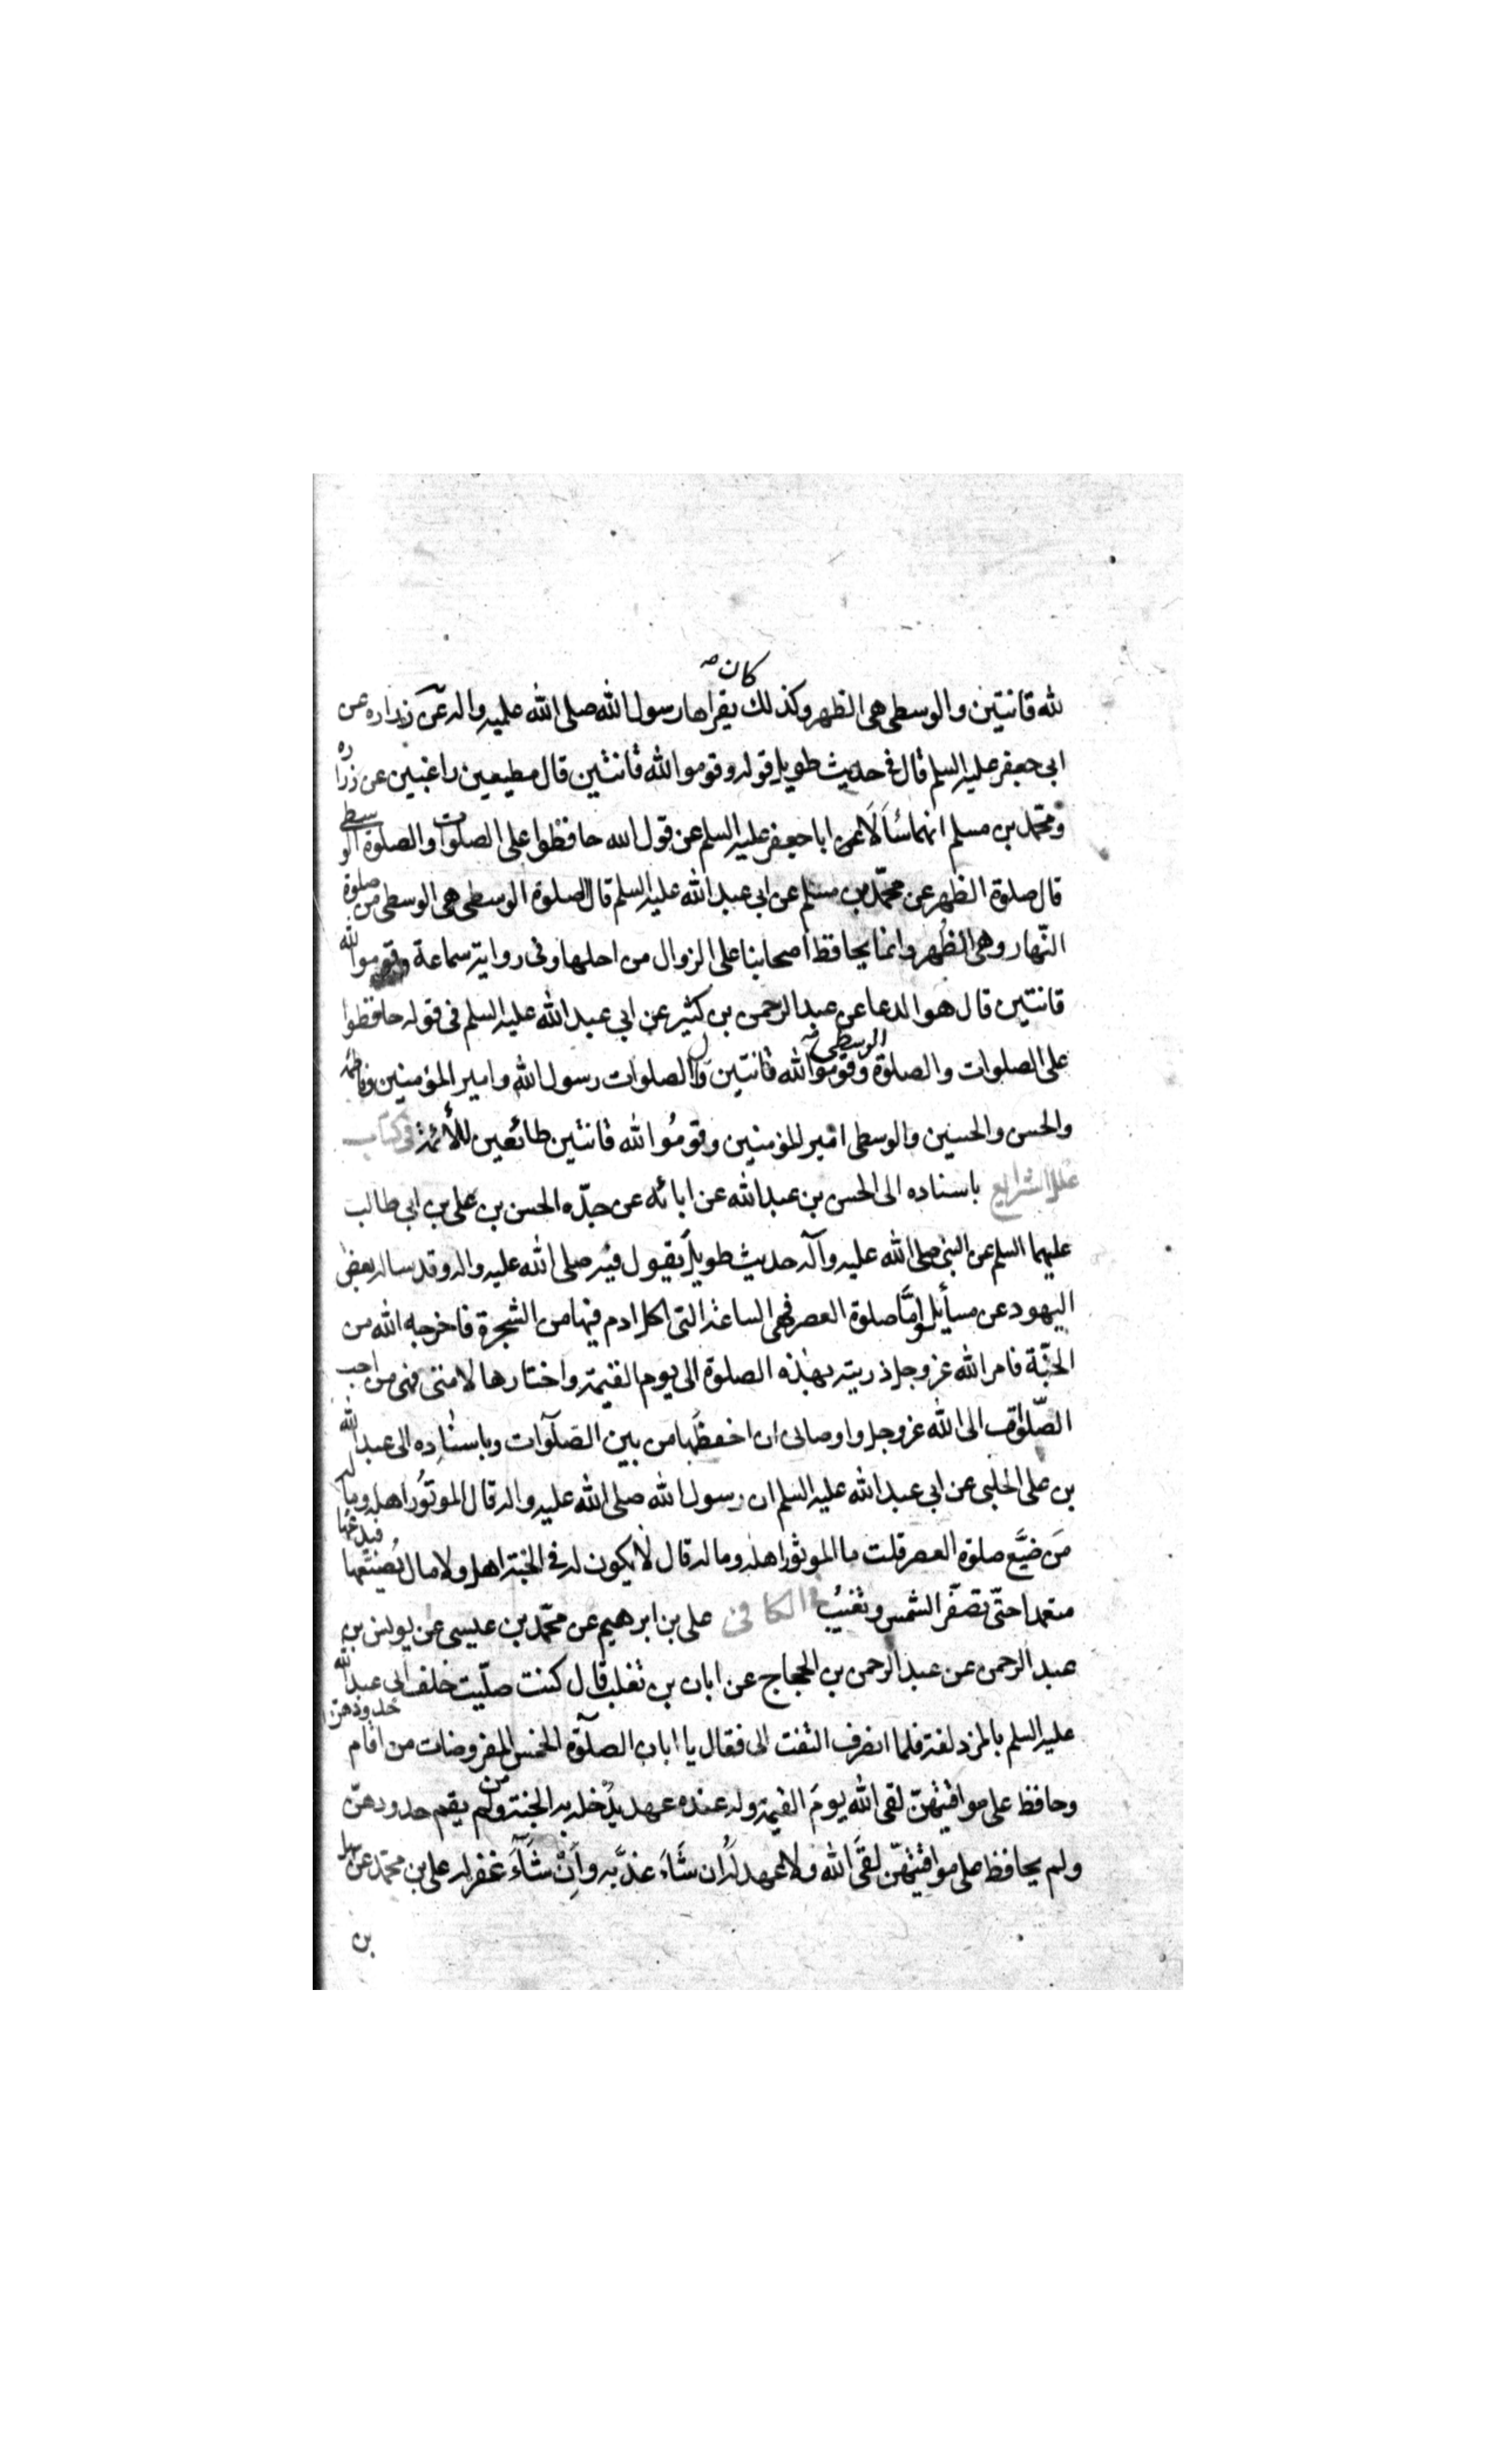 كان
لله قانتين والوسطى هى الظهر وكذلك يقراها رسول الله صلى الله عليه واله عن زراره عن
ابى جعفر عليه السلم قال فى حديث طويل قوله وقوموا لله قانتين قال مطيعين راغبين عن زراره
ومحمّد بن مسلم انهما سَاَلَا عن ابا جعفر عليه السلم عن قول الله حافظوا على الصلوات والصلوة الوسطى
قال صلوة الظهر عن محمّد بن مسلم عن ابى عبد الله عليه السلم قال الصلوة الوسطى هى الوسطى من صلوة
النّهار وهى الظهر وانما يحافظ اصحابنا على الزوال من اجلها وفى رواية سماعة وقوموا لله
قانتين قال هو الدعا عن عبد الرحمن بن كثير عن ابى عبد الله عليه السلم فى قوله حافظوا
على الصلوات والصلوة الوسطى وقوموا لله قانتين قال الصلوات رسول الله وامير المؤمنين وفاطمة
والحسن والحسين والوسطى امير المؤمنين وقومُوا لله قانتين طائعين للأئمة فى كتاب
علل الشرايع باسناده الى الحسن بن عبد الله عن ابائه عن جدّه الحسن بن على بن ابى طالب
عليهما السلم عن النبى صلى الله عليه وآله حديث طويل يقول فيه صلى الله عليه واله وقد ساله بعض
اليهود عن مسأيل وامَّا صلوة العصر فهى الساعة التى اكل ادم فيها من الشجرة فاخرجه الله من
الجنّة فامر الله عز وجل ذريته بهذه الصلوة الى يوم القيمة واختارها لامتى فهى من احب
الصّلوات الى الله عز وجل واوصانى ان احفظها من بين الصّلوات وباسناده الى عبد الله
بن على الحلبى عن ابى عبد الله عليه السلم ان رسول الله صلى الله عليه واله قال الموتُور اهله وماله
مَن ضيَّع صلوة العصر قلت ما الموتور اهله وماله قال لا يكون له فى الجنة اهل ولا مال يُضيّعها فيدعها
متعمدا حتّى تصفّر الشمس وتغيبُ فى الكافى على بن ابرهيم عن محمّد بن عيسى عن يونس بن
عبد الرحمن عن عبد الرحمن بن الحجاج عن ابان بن تغلب قال كنت صلّيت خلف ابى عبد الله
عليه السلم بالمزدلفة فلما انصرف التفت الى فقال يا ابان الصلوة الخمس المفروضات من اقام حدودهن
وحافظ على مواقيتهنّ لقى الله يومَ القيمة وله عنده عهد يدخله به الجنة ومن لم يقم حدودهنّ
ولم يحافظ على مواقيتهنّ لقى الله ولا عهد له ان شَاءَ عذَّبه واِنْ شَآءَ غفر له على بن محمّد عن سهل
بن